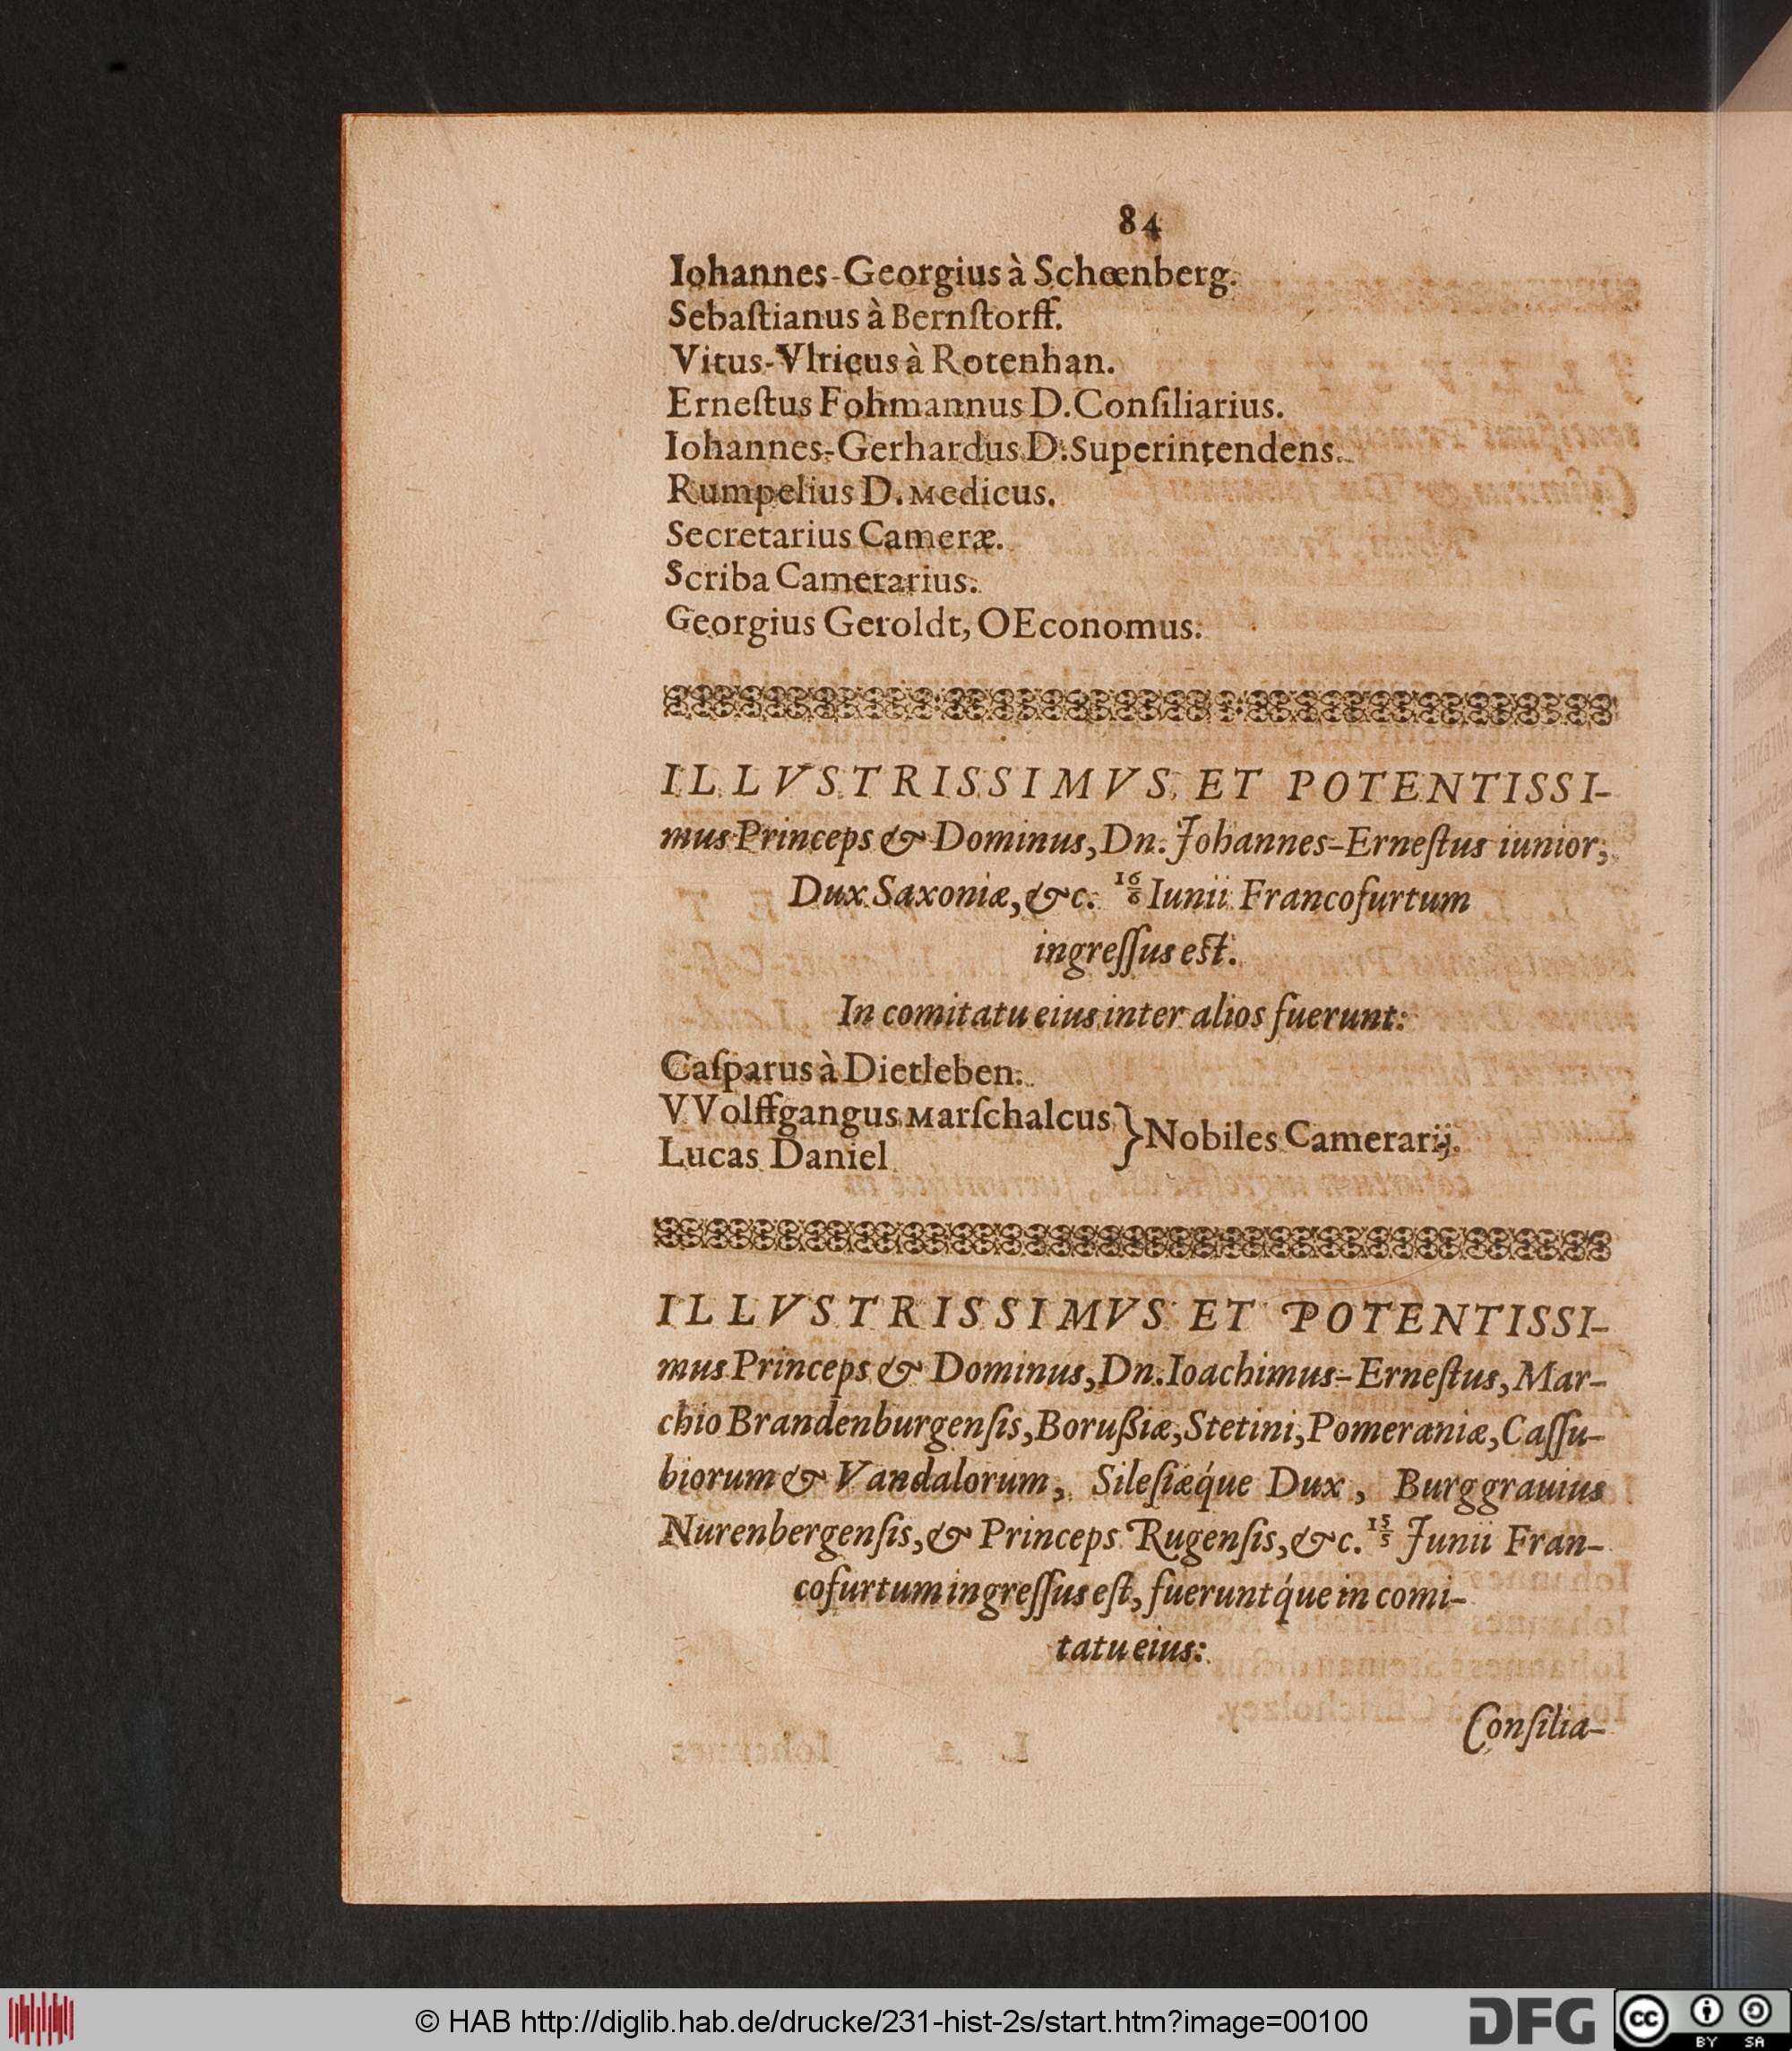 84
Iohannes-Georgius à Schœnberg.
Sebaſtianus à Bernſtorff.
Vitus-Vlricus à Rotenhan.
Erneſtus Fohmannus D. Conſiliarius.
Iohannes-Gerhardus D. Superintendens.
Rumpelius D. Medicus.
Secretarius Cameræ.
Scriba Camerarius.
Georgius Geroldt, OEconomus.
ILLVSTRISSIMVS ET POTENTISSI-
mus Princeps & Dominus, Dn. Johannes-Erneſtus iunior,
Dux Saxoniæ, &c. 16/6 Iunii Francofurtum
ingreſſus eſt.
In comitatu eius inter alios fuerunt:
Caſparus à Dietleben.
VVolffgangus Marſchalcus
Lucas Daniel } Nobiles Camerarij.
ILLVSTRISSIMVS ET POTENTISSI-
mus Princeps & Dominus, Dn. Ioachimus-Erneſtus, Mar-
chio Brandenburgenſis, Borußiæ, Stetini, Pomeraniæ, Caſſu-
biorum & Vandalorum, Sileſiæq́ue Dux, Burggrauius
Nurenbergenſis, & Princeps Rugenſis, &c. 15/5 Junii Fran-
cofurtum ingreſſus eſt, fueruntq́ue in comi-
tatu eius:
Conſilia-
© HAB http://diglib.hab.de/drucke/231-hist-2s/start.htm?image=00100
DFG
cc BY SA